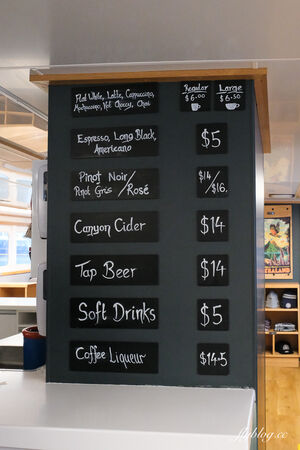 Flat White, Latte, Cappuccino,
Mochaccino, Hot Choccy, Chai
Regular
$6.00
Large
$6.50
Espresso, Long Black,
Americano
$5
Pinot Noir/
Pinot Gris/Rosé
$14/
$16.
Canyon Cider
$14
Tap Beer
$14
Soft Drinks
$5
Coffee Liqueur
$14.5
flyblog.cc